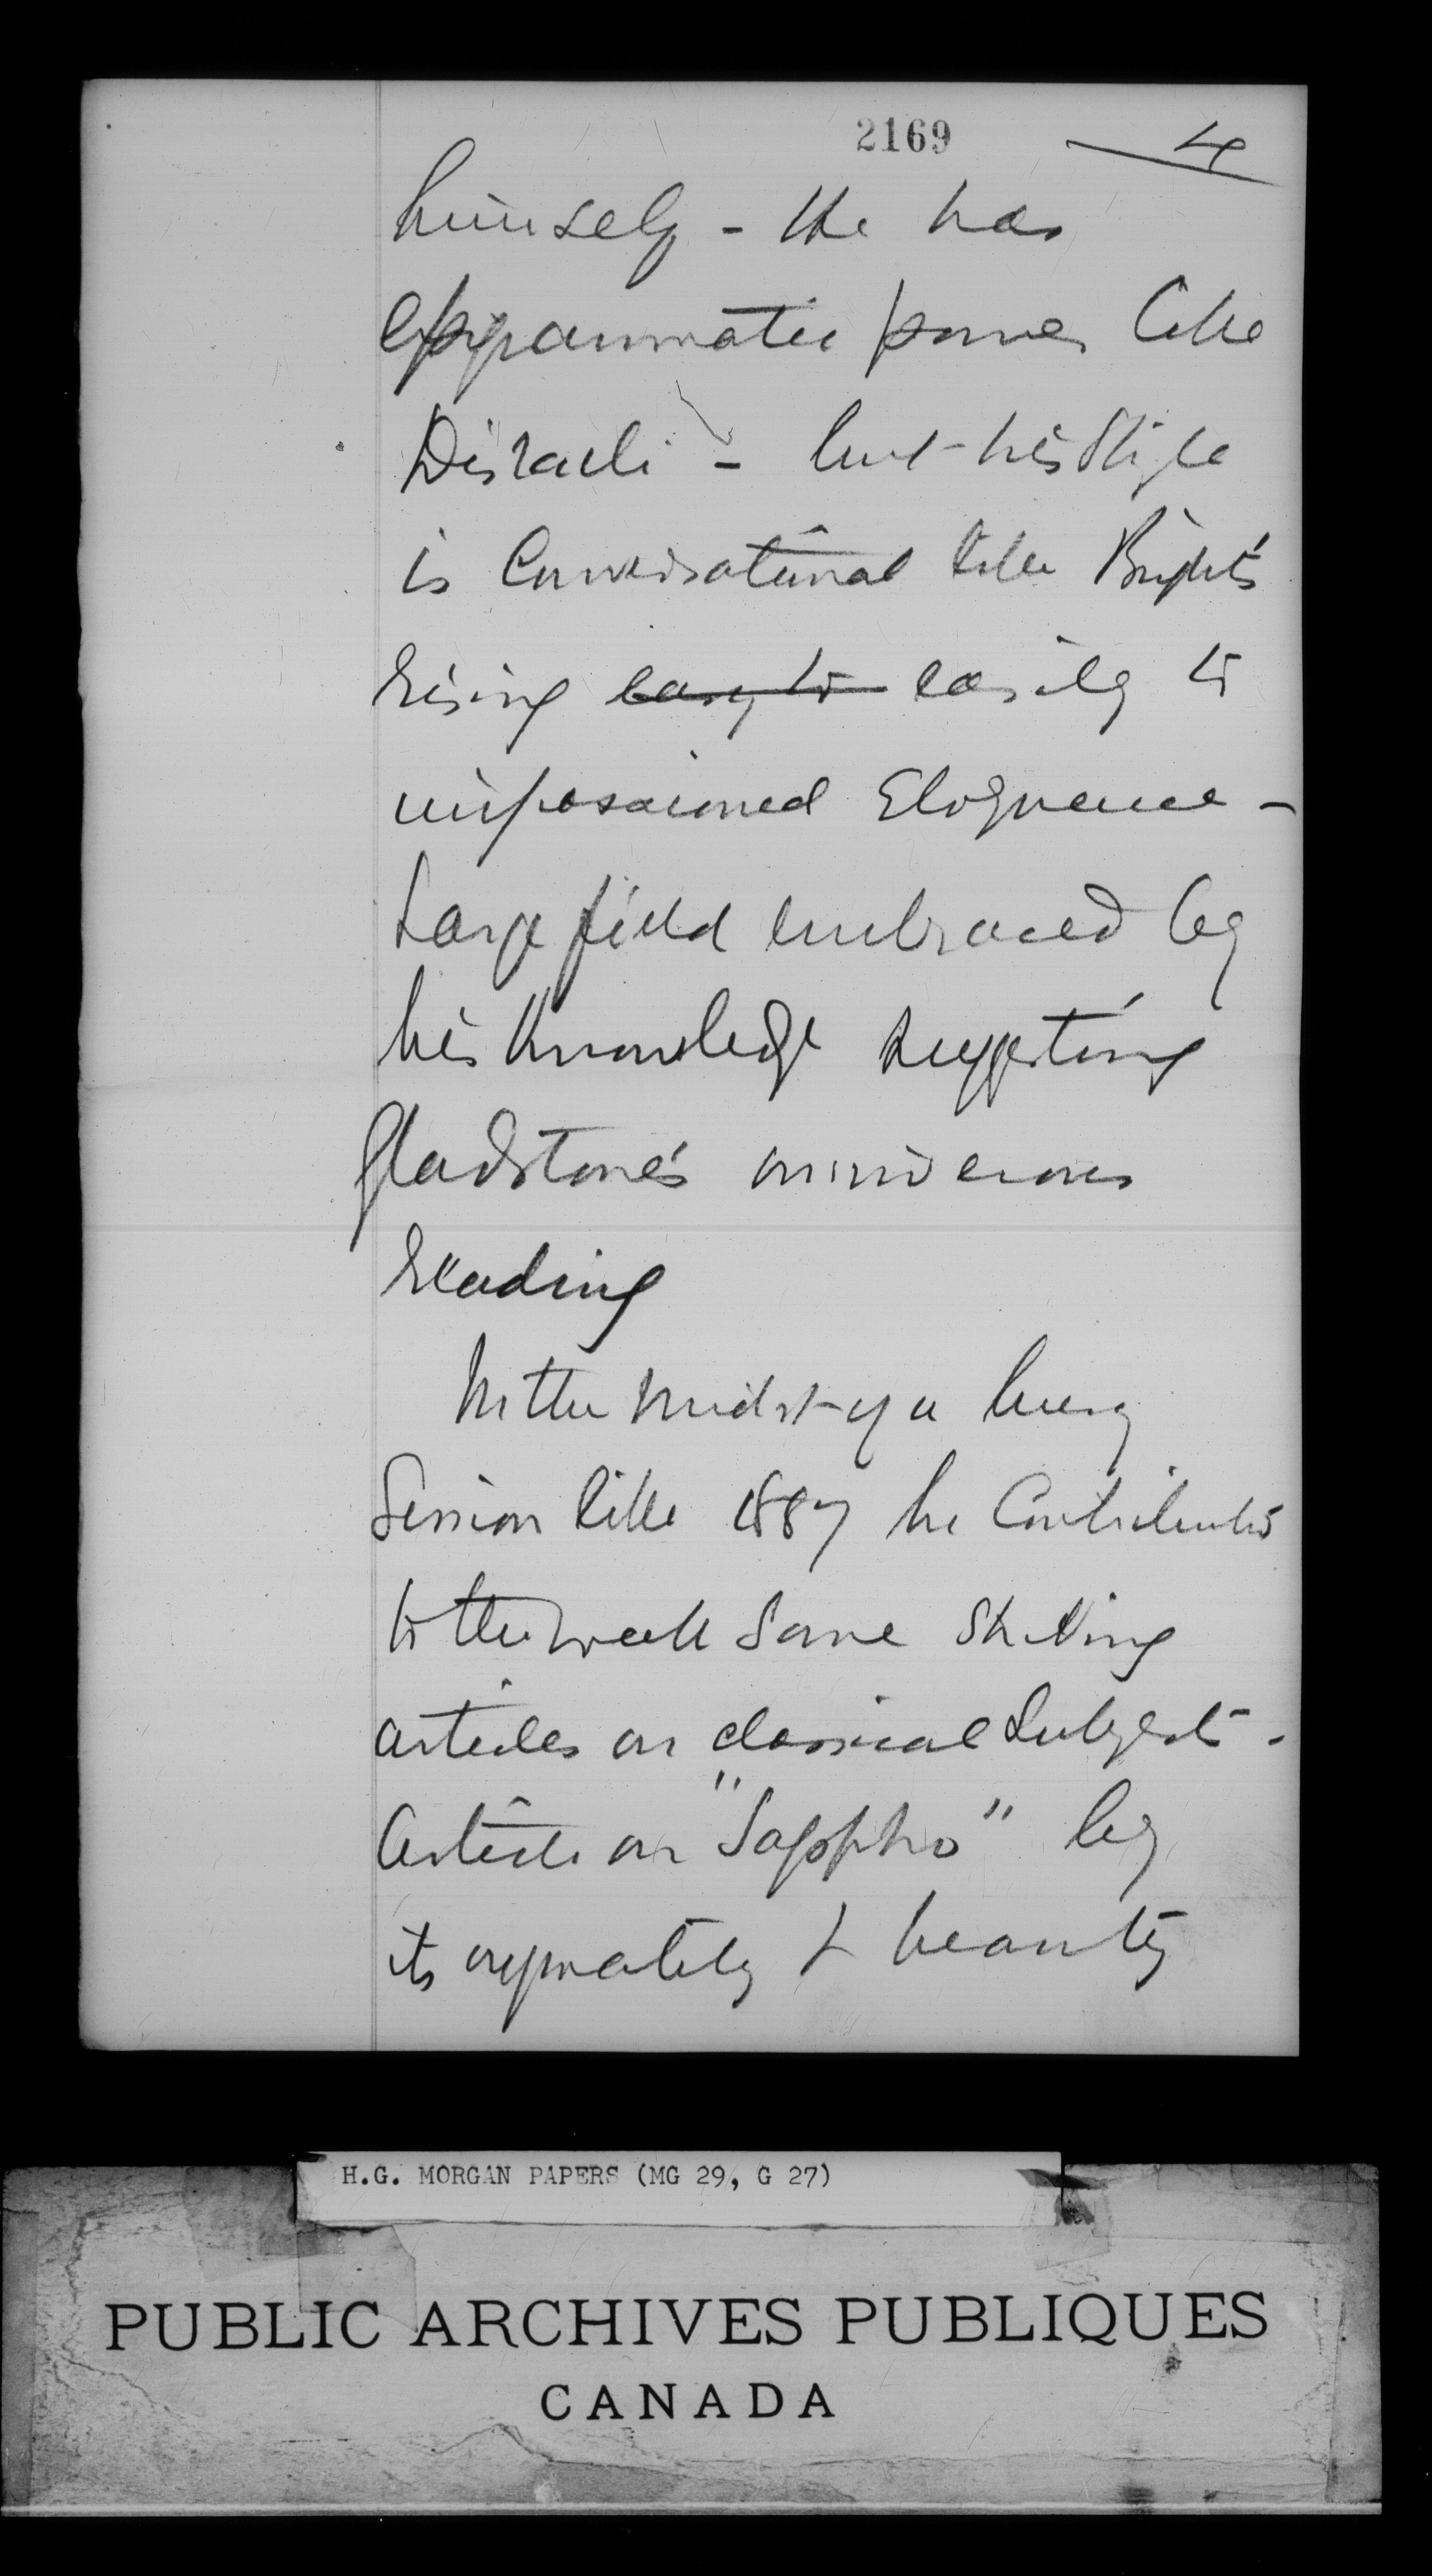 2169 4
himself - He has
epigrammatic power like
Disraeli - but his style
is Conversational like Bright's
rising easy to easily to
impassioned Eloquence -
Large field embraced by
his knowledge suggesting
Gladstone's omniverous
reading
In the midst of a busy
Session like 1887 he Contributes
to the Week Some Striking
articles on classical Subjects -
Article on "Sappho" by
its originality & beauty
H.G. MORGAN PAPERS (MG 29, G 27)
PUBLIC ARCHIVES PUBLIQUES
CANADA